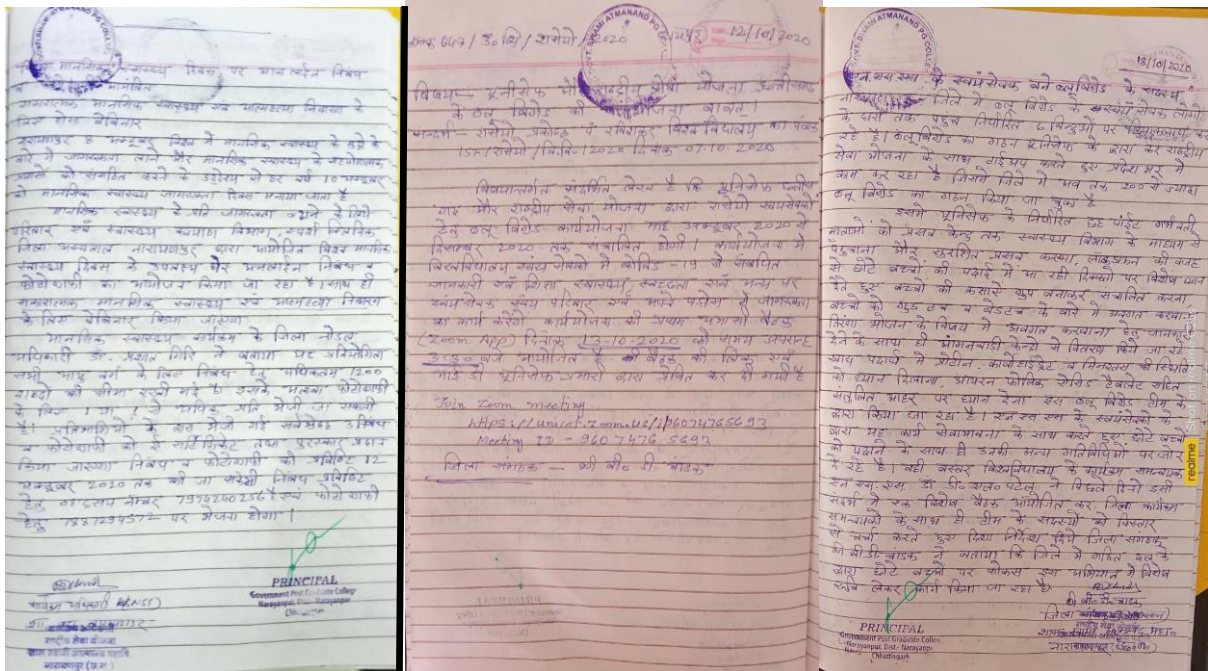 विश्व मानसिक स्वास्थ्य दिवस पर आनलाईन निबंध
व
सकारात्मक मानसिक स्वास्थ्य एवं आत्महत्या निवारण के
लिए होगा वेबिनार
नारायणपुर 8 अक्टूबर विश्व में मानसिक स्वास्थ्य के मुद्दे के
बारे में जागरूकता लाने और मानसिक स्वास्थ्य के सहयोगात्मक
प्रयासों को संगठित करने के उद्देश्य से हर वर्ष 10 अक्टूबर
को मानसिक स्वास्थ्य जागरूकता दिवस मनाया जाता है
मानसिक स्वास्थ्य के प्रति जागरूकता बढ़ाने के लिये
परिवार एवं स्वास्थ्य कल्याण विभाग, स्पर्श क्लिनिक
जिला अस्पताल नारायणपुर द्वारा आयोजित विश्व मानसिक
स्वास्थ्य दिवस के उपलक्ष्य पर आनलाईन निबंध व
फोटोग्राफी का आयोजन किया जा रहा है। साथ ही
सकारात्मक मानसिक स्वास्थ्य एवं आत्महत्या निवारण
के लिए वेबिनार किया जाएगा
मानसिक स्वास्थ्य कार्यक्रम के जिला नोडल
अधिकारी डॉ. प्रशांत गिरि ने बताया यह प्रतियोगिता
सभी आयु वर्ग के लिए निबंध हेतु अधिकतम 1200
शब्दों की सीमा रखी गई है इसके अलावा फोटोग्राफी
के लिए 1 या 1 से अधिक प्रति भेजी जा सकती
है। प्रतिभागियों के द्वारा भेजे गई सर्वश्रेष्ठ 3 निबंध
व फोटोग्राफी को ई सर्टिफिकेट तथा पुरस्कार प्रदान
किया जाएगा निबंध व फोटोग्राफी की प्रविष्टि 12
अक्टूबर 2020 तक की जा सकेगी निबंध प्रविष्टि
हेतु व्हाट्सप नम्बर 7974240256 है एवं फोटोग्राफी
हेतु 7887294572 पर भेजना होगा।
कार्यक्रम अधिकारी
राष्ट्रीय सेवा योजना
नारायणपुर (छ.ग.)
PRINCIPAL
Government Post Graduate College
Narayanpur, Dist.- Narayanpur
GOVT. SWAMI ATMANAND PG COLLEGE
12/10/2020
विषय:- यूनीसेफ और राष्ट्रीय सेवा योजना छत्तीसगढ़
के ब्लू ब्रिगेड की कार्ययोजना बाबत।
सन्दर्भ - रासेयो प्रकोष्ठ पं रविशंकर विश्व विद्यालय का पत्र क्र
157/रासेयो/वि.वि./2020 दिनांक 07.10.2020
विषयान्तर्गत संदर्भित लेख है कि यूनिसेफ छत्तीस
गढ़ और राष्ट्रीय सेवा योजना द्वारा रासेयो स्वयंसेवको
हेतु ब्लू ब्रिगेड कार्ययोजना माह अक्टूबर 2020 से
दिसम्बर 2020 तक संचालित होगी। कार्ययोजना में
विश्वविद्यालय स्वयं सेवको में कोविड-19 से संबंधित
जानकारी एवं शिक्षा, स्वास्थ्य, स्वच्छता एवं अन्य पर
स्वयंसेवक स्वयं परिवार एवं अपने पड़ोस में जागरूकता
का कार्य करेंगे कार्ययोजना की प्रथम बैठक
(Zoom App) दिनांक 13-10-2020 को समय अपरान्ह
3:30 बजे आयोजित है बैठक की लिंक एवं
आई डी यूनिसेफ प्रभारी द्वारा प्रेषित कर दी गयी है
Join Zoom meeting
https://unicef.zoom.us/j/96074765693
Meeting ID - 960 7476 5693
जिला संगठक - श्री बी. डी चांडक
ATMANAND PG COLLEGE
13/10/2020
एन.एस.एस के स्वयंसेवक बने ब्लू ब्रिगेड के सदस्य
नारायणपुर जिले में ब्लू ब्रिगेड के स्वयं सेवक लोगो
के द्वारों तक पहुंच निर्धारित 6 बिन्दुओं पर
रहे है। ब्लू ब्रिगेड का गठन यूनिसेफ के द्वारा कर राष्ट्रीय
सेवा योजना के साथ टाईअप करते हुए प्रदेश भर में
काम कर रहा है जिसमें जिले में अब तक 200 से ज्यादा
ब्लू ब्रिगेड का गठन किया जा चुका है
इसमें यूनिसेफ के निर्धारित छह पाईंट गर्भवती
माताओं को प्रसव केन्द्र तक स्वास्थ्य विभाग के माध्यम से
पहुंचाना और सुरक्षित प्रसव करवाना, लाकडाउन की वजह
से छोटे बच्चो की पढ़ाई में आ रही दिक्कतो पर विशेष ध्यान
देते हुए बच्चो की कक्षाएं ग्रुप बनाकर संचालित करना,
बच्चो को गुड टच व बेड टच के बारे में अवगत करवाना
तिरंगा भोजन के विषय में अवगत करवाना हेतु जानकारी
देने के साथ ही आंगनबाड़ी केन्द्रो से वितरण किये जा रहे
खाद्य पदार्थ में प्रोटीन, कार्बोहाइड्रेट व मिनरल्स की स्थिति
को ध्यान दिलाना, आयरन फोलिक एसिड टेबलेट सहित
संतुलित आहार पर ध्यान देना सब ब्लू ब्रिगेड टीम के
द्वारा किया जा रहा है। एन एस एस के स्वयंसेवको के
द्वारा यह कार्य सेवाभावना के साथ करते हुए छोटे बच्चो
को पढ़ाने के साथ ही उनकी अन्य गतिविधियों पर जोर
दे रहे है। वही बस्तर विश्वविद्यालय के कार्यक्रम समन्वयक
एन.एस.एस. डॉ डी. एल. पटेल ने पिछले दिनो इसी
संदर्भ में एक विशेष बैठक आयोजित कर जिला कार्यक्रम
समन्वयको के साथ ही टीम के सदस्यों को विस्तार
से चर्चा करते हुए दिशा निर्देश दिये जिला संगठक
श्री बी.डी. चांडक ने बताया कि जिले में गठित दल के
द्वारा छोटे बच्चों पर फोकस इस अभियान में विशेष
रूचि लेकर कार्य किया जा रहा है
श्री बी. डी चांडक
जिला
नारायणपुर
PRINCIPAL
Government Post Graduate College
Narayanpur, Dist.- Narayanpur
Chhattisgarh
realme